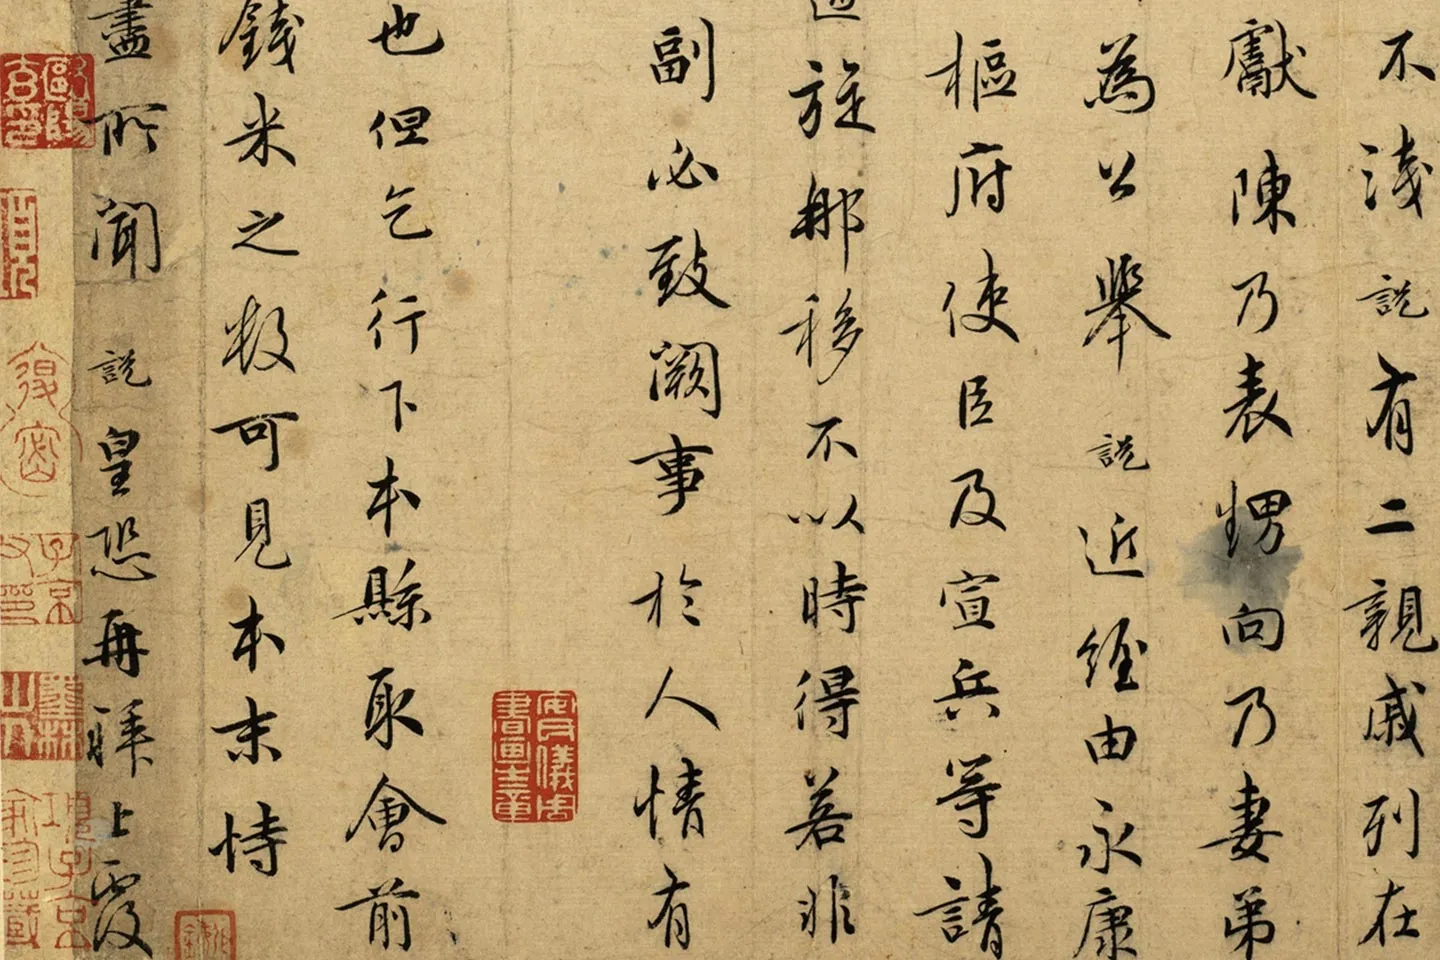 不淺說有二親戚列在
獻陳乃表甥向乃妻弟
為公舉說近經由永康
樞府使臣及宣兵等請
旋那移不以時得若非
副必致闕事於人情有
也但乞行下本縣取會前
錢米之數可見本末恃
盡所聞說皇恐再拜上覆
安儀周書畫之章
子京